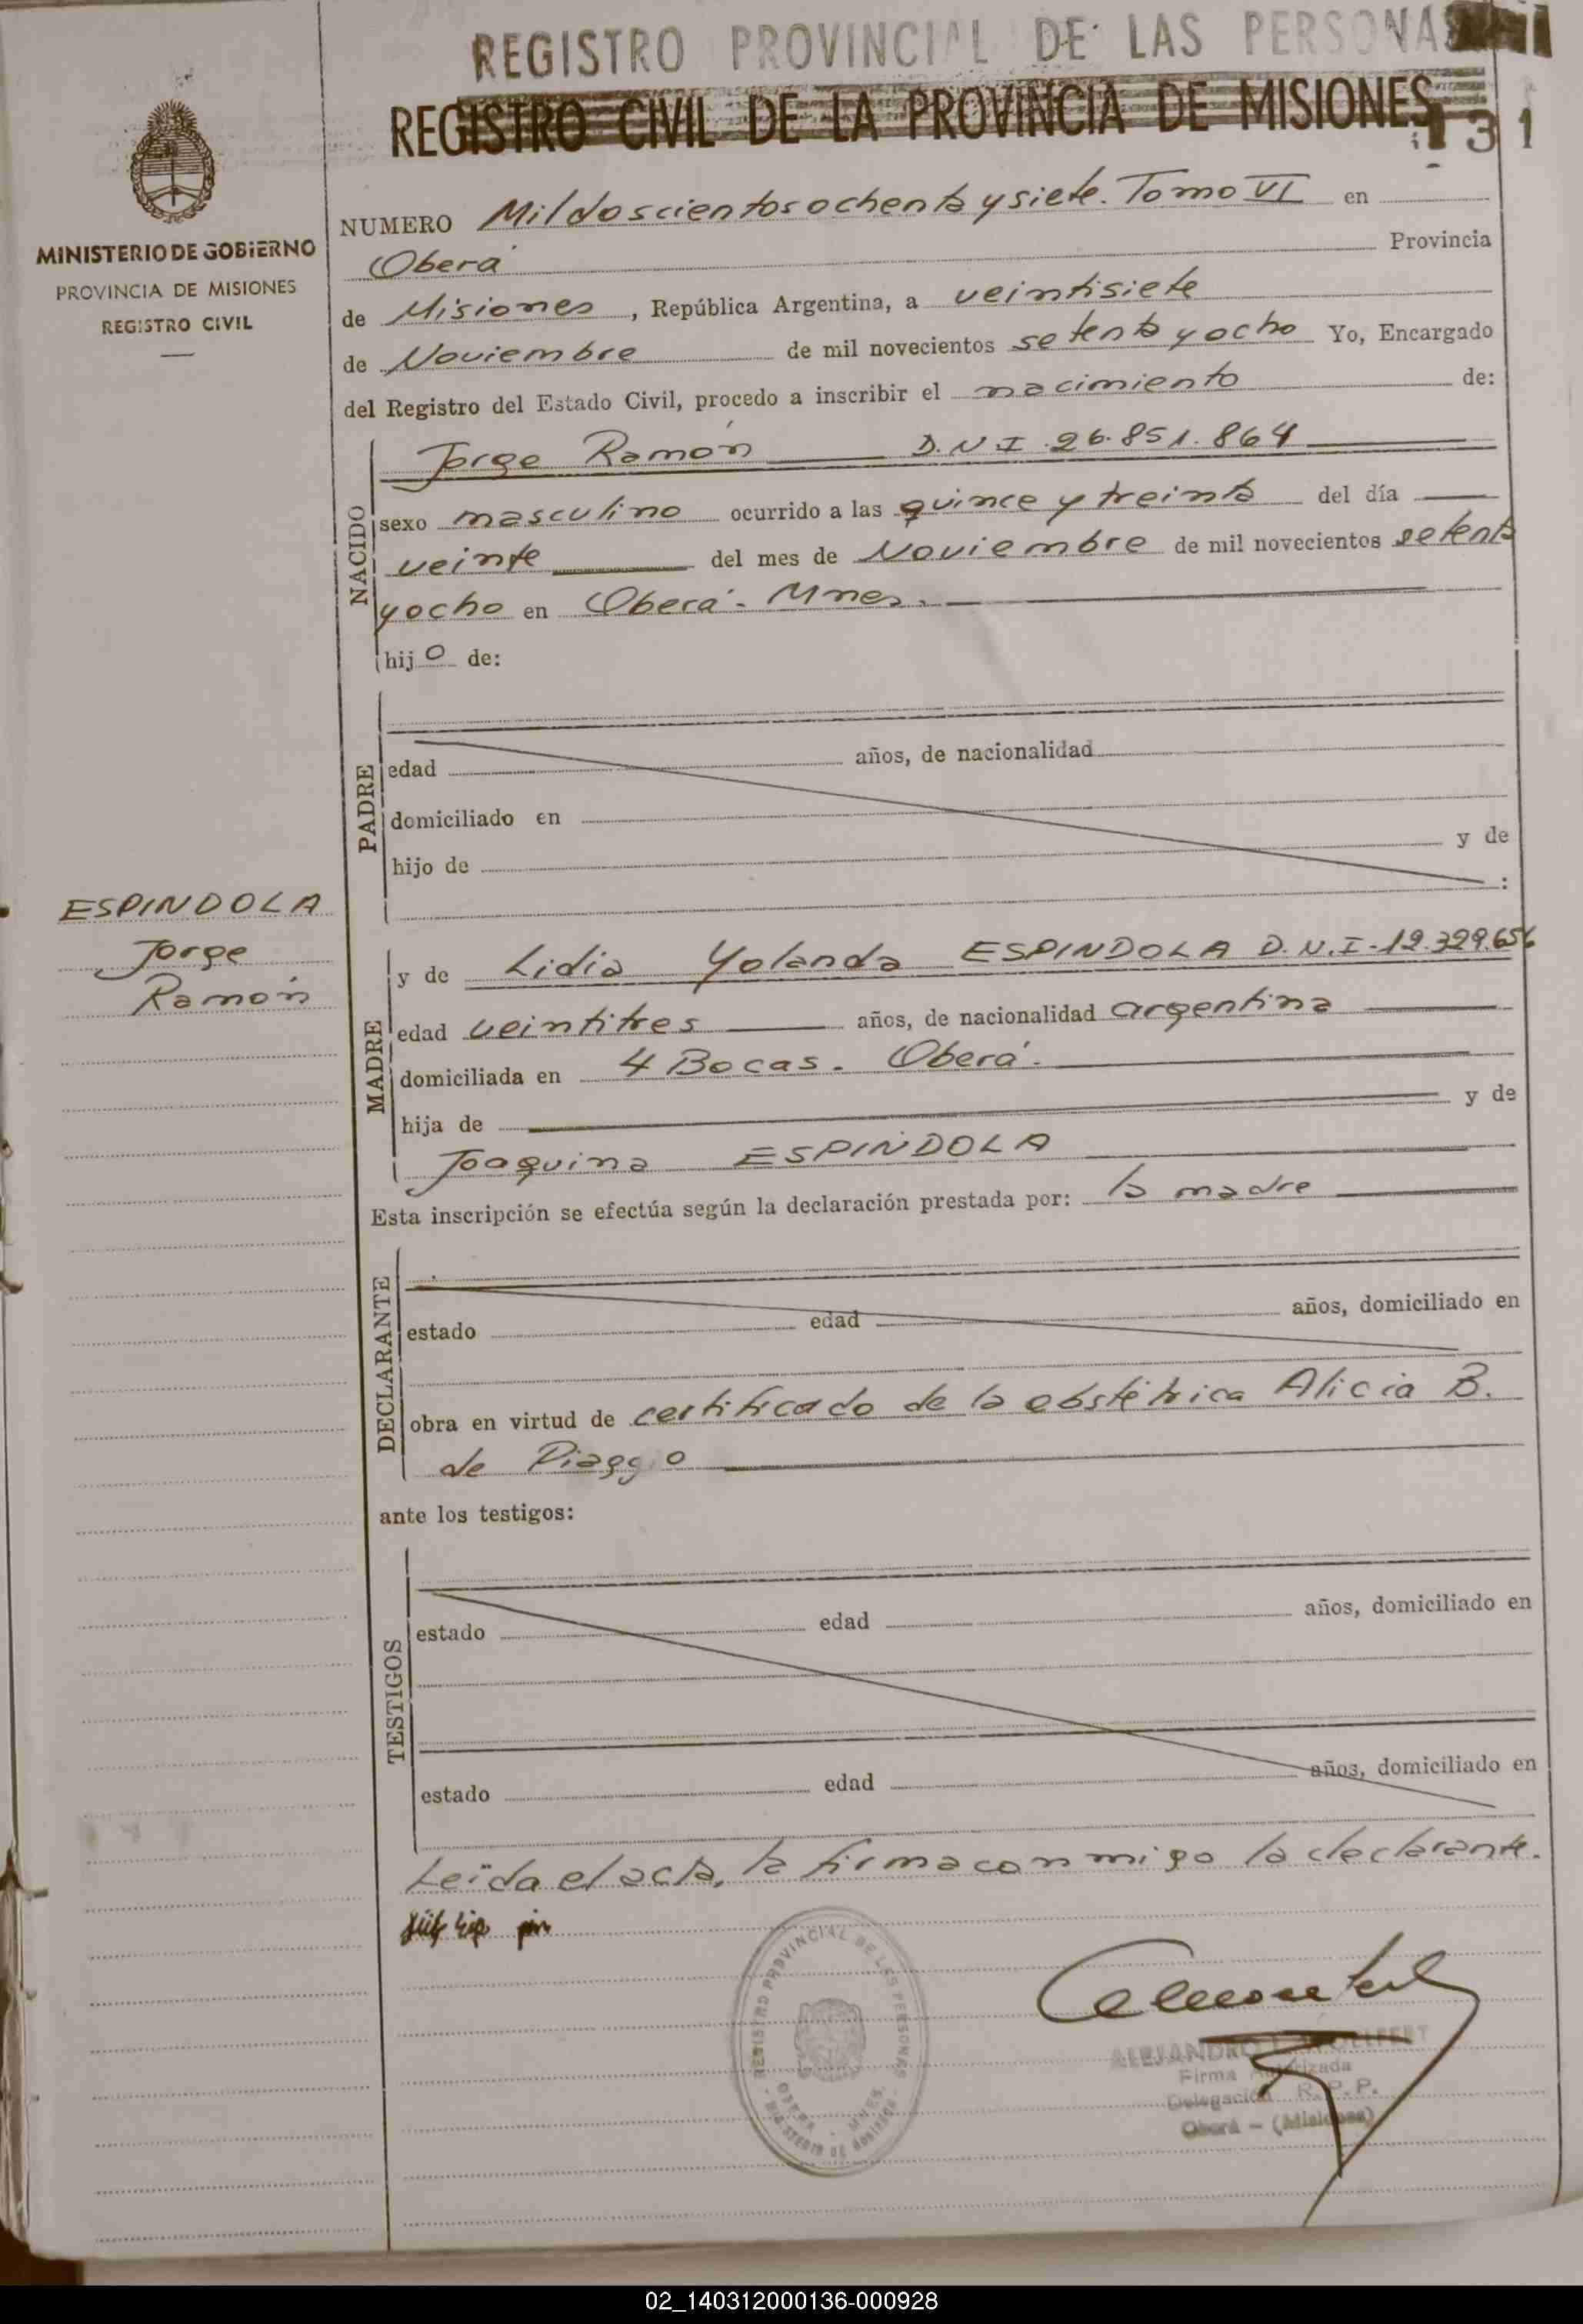 REGISTRO PROVINCIAL DE LAS PERSONAS
REGISTRO CIVIL DE LA PROVINCIA DE MISIONES
131
MINISTERIO DE GOBIERNO
PROVINCIA DE MISIONES
REGISTRO CIVIL
NUMERO Mil doscientos ochenta y siete. Tomo VI en
Oberá Provincia
de Misiones, República Argentina, a veintisiete
de Noviembre de mil novecientos setenta y ocho Yo, Encargado
del Registro del Estado Civil, procedo a inscribir el nacimiento de:
NACIDO
Jorge Ramón D.N.I. 26.851.864
sexo masculino ocurrido a las quince y treinta del día
veinte del mes de Noviembre de mil novecientos setenta
y ocho en Oberá - Mnes.
hijo de:
PADRE
edad años, de nacionalidad
domiciliado en
hijo de y de
:
ESPINDOLA
Jorge
Ramón
MADRE
y de Lidia Yolanda ESPINDOLA D.N.I. 12.329.656
edad veintitres años, de nacionalidad argentina
domiciliada en 4 Bocas. Oberá.
hija de y de
Joaquina ESPINDOLA
Esta inscripción se efectúa según la declaración prestada por: la madre
DECLARANTE
estado edad años, domiciliado en
obra en virtud de certificado de la obstétrica Alicia B.
de Piaggio
ante los testigos:
TESTIGOS
estado edad años, domiciliado en
estado edad años, domiciliado en
Leída el acta, la firma conmigo la declarante.
REGISTRO PROVINCIAL DE LAS PERSONAS
OBERA - MNES.
MINISTERIO DE GOBIERNO
ALEJANDRO
Firma Autorizada
Delegación R.P.P.
Oberá - (Misiones)
02_140312000136-000928